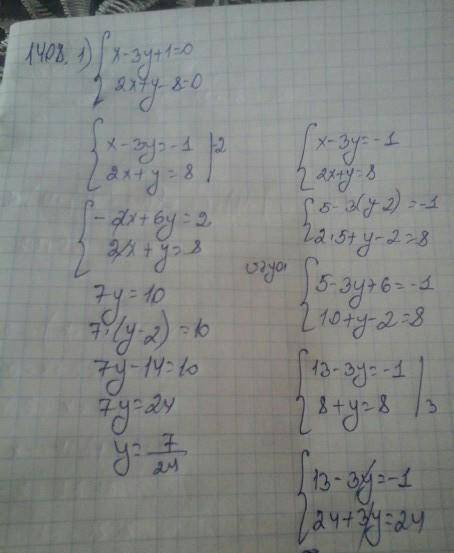 1408. 1) { x-3y+1=0
2x+y-8=0
{ x-3y=-1 |-2
2x+y=8
{ -2x+6y=2
2x+y=8
7y=10
7·(y-2)=10
7y-14=10
7y=24
y=7/24
{ x-3y=-1
2x+y=8
{ 5-3(y-2)=-1
2·5+y-2=8
{ 5-3y+6=-1
10+y-2=8
{ 13-3y=-1
8+y=8 | 3
{ 13-3y=-1
24+3y=24